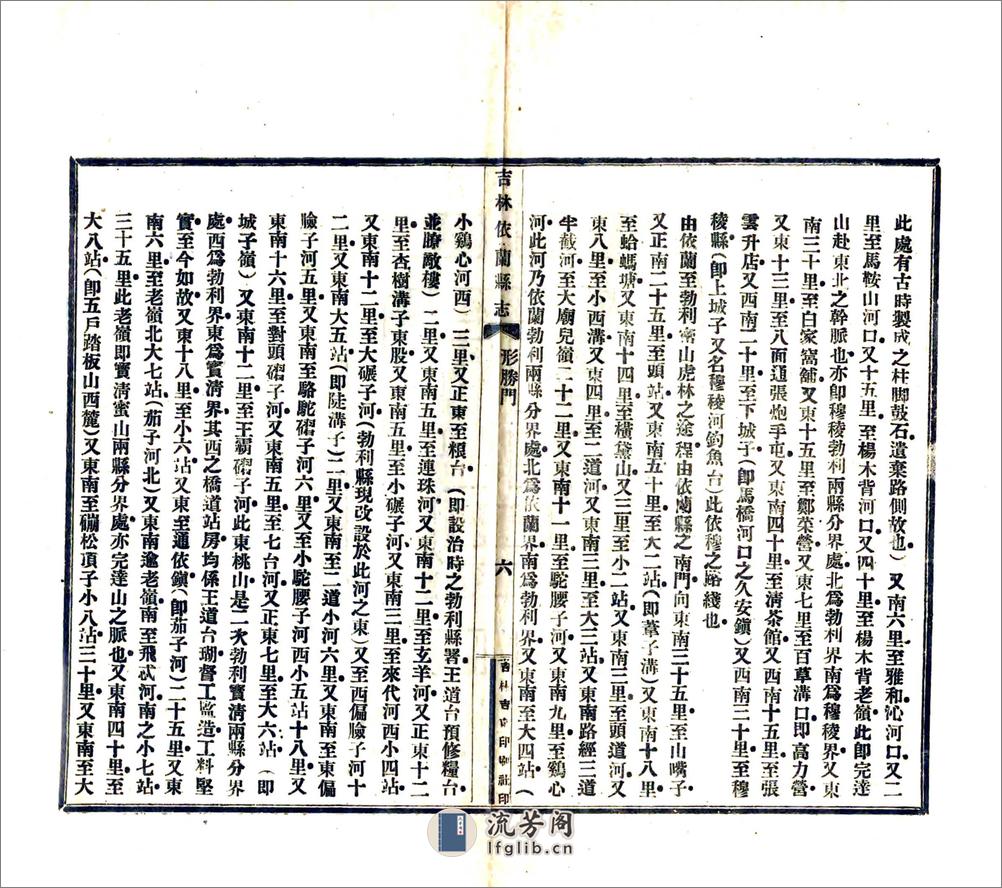 此處有古時製成之柱脚鼓石遺棄路側故也）又南六里至雅和沁河口又二
里至馬鞍山河口又十五里至楊木背河口又四十里至楊木背老嶺此卽完達
山赴東北之幹脈也亦卽穆稜勃利兩縣分界處北爲勃利界南爲穆稜界又東
南三十里至白家窩舖又東十五里至鄭榮營又東七里至百草溝口卽高力營
又東十三里至八面通張炮手屯又東南四十里至清茶館又西南十五里至張
雲升店又西南二十里至下城子（卽馬橋河口之久安鎭）又西南三十里至穆
稜縣（卽上城子又名穆稜河釣魚台）此依穆之路綫也
由依蘭至勃利密山虎林之途程由依蘭縣之南門向東南三十五里至山嘴子
又正南二十五里至頭站又東南五十里至大二站（卽葦子溝）又東南十八里
至蛤螞塘又東南十四里至橫黛山又三里至小二站又東南三里至頭道河又
東八里至小西溝又東四里至二道河又東南三里至大三站又東南路經三道
半截河至大廟兒嶺二十二里又東南十一里至駝腰子河又東南九里至鷄心
河此河乃依蘭勃利兩縣分界處北爲依蘭界南爲勃利界又東南至大四站（
吉林依蘭縣志
形勝門
六
吉林吉東印刷社印
小鷄心河西）三里又正東至粮台（卽設治時之勃利縣署王道台預修糧台
並瞭敵樓）二里又東南五里至連珠河又東南十二里至玄羊河又正東十二
里至杏樹溝子東股又東南五里至小碾子河又東南三里至來代河西小四站
又東南十二里至大碾子河（勃利縣現改設於此河之東）又至西偏臉子河十
二里又東南大五站（卽陡溝子）二里又東南至二道小河六里又東南至東偏
臉子河五里又東南至駱駝磖子河六里又至小駝腰子河西小五站十八里又
東南十六里至對頭磖子河又東南五里至七台河又正東七里至大六站（卽
城子嶺）又東南十二里至王霸磖子河此東桃山是二次勃利寶清兩縣分界
處西爲勃利界東爲寶清界其西之橋道站房均係王道台瑚督工監造工料堅
實至今如故又東十八里至小六站又東至通依鎭（卽茄子河）二十五里又東
南六里至老嶺北大七站（茄子河北）又東南逾老嶺南至飛忒河南之小七站
三十五里此老嶺卽寶清蜜山兩縣分界處亦完達山之脈也又東南四十里至
大八站（卽五戶踏板山西麓）又東南至磞松頂子小八站三十里又東南至大
流芳阁
lfglib.cn